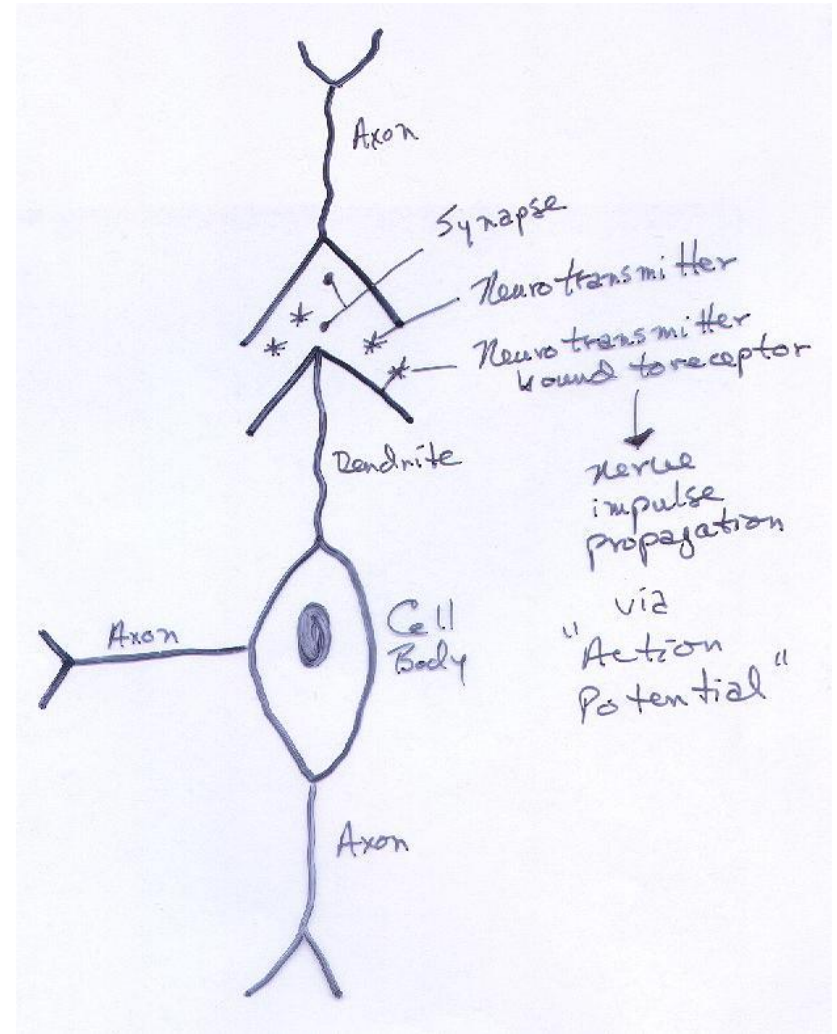 Axon
Synapse
Neurotransmitter
Neurotransmitter
bound to receptor
Dendrite
nerve
impulse
propagation
via
"Action
Potential"
Cell
Body
Axon
Axon